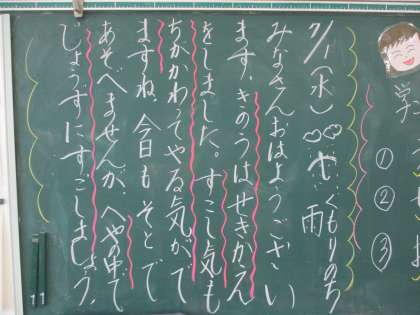 学
①
②
③
7/1(水) くもりのち雨
みなさんおはようござい
ます。きのうはせきがえ
をしました。すこし気も
ちがかわってやる気がで
ますね。今日もそとで
あそべませんが、へやの中で
じょうずにすごしましょう。